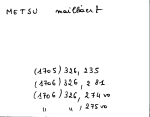 METSU maillaert
(1705) 326, 235
(1706) 326, 281
(1706) 326, 274 vo
" ", 275 vo